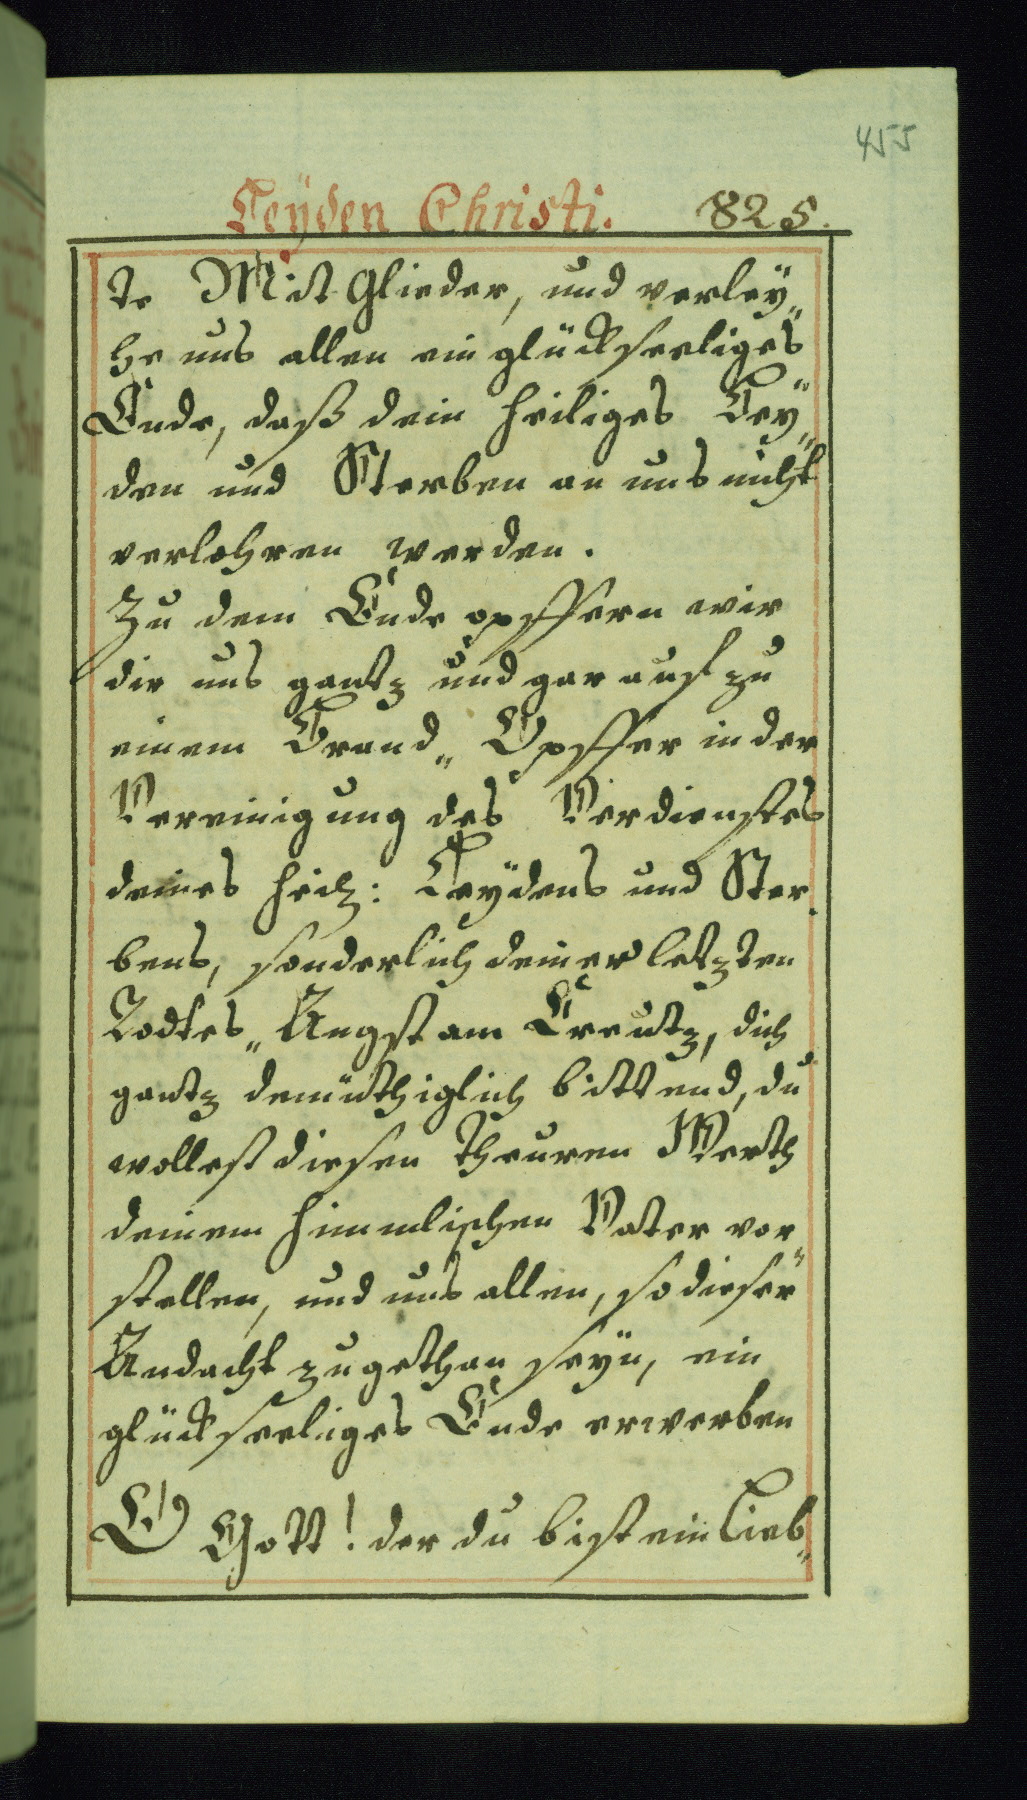 455
Leÿden Christi. 825.
te Mit Glieder, und verleÿ„
he uns allen ein glückseeliges
Ende, daß dein heiliges Leÿ„
den und Sterben an uns nicht
verlohren werden.
Zu dem Ende opffern wir
dir uns gantz und gar auf zu
einem Brand„ Opffer in der
Vereinigung des Verdienstes
deines heil: Leÿdens und Ster„
bens, sonderlich deiner letzten
Todtes„ Angst am Creutz, dich
gantz demüthiglich bittend, du
wollest diesen theuren Werth
deinem himmlischen Vater vor„
stellen, und uns allen, so dieser
Andacht zugethan seÿn, ein
glückseeliges Ende erwerben
O Gott! der du bist ein Lieb„